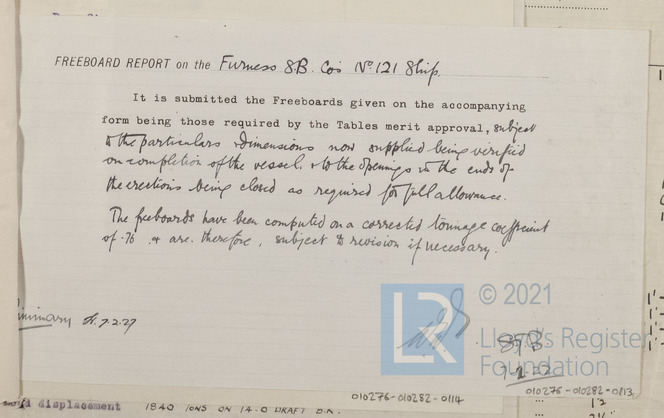 FREEBOARD REPORT on the Furness S.B. Co's No 121 Ship.
It is submitted the Freeboards given on the accompanying
form being those required by the Tables merit approval, subject
to the particulars & dimensions now supplied being verified
on completion of the vessel, & to the openings in the ends of
the erections being closed as required for full allowance.
The freeboards have been computed on a corrected tonnage coefficient
of .76 & are, therefore, subject to revision if necessary.
7.2.27
LR
© 2021
Lloyd's Register
Foundation
010276-010282-0114
010276-010282-0113
displacement 1840 TONS ON 14.0 DRAFT